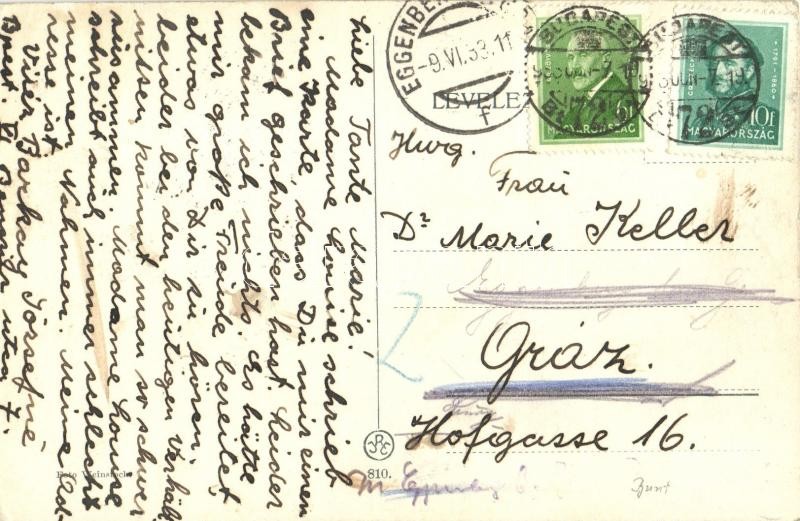 Liebe Tante Marie!
Madame Louise schrieb
eine Karte, dass Du mir einen
Brief geschrieben hast. Leider
bekam ich nichts. Es hätte
mir große Freude bereitet
etwas von Dir zu hören.
Leider bei den heutigen Verhält-
nissen, kommt man so schwer
zusammen. Madame Louise
schreibt auch immer schlecht
meinen Nahmen. Meine Ad-
resse ist
Vicér Barkay Józsefné
Bpest. VI utca 7.
EGGENBERG
-9.VI.33.11
f
LEVELEZ
BUDAPEST
72
6f
MAGYARORSZÁG
BUDAPEST
72
1791-1860
10f
MAGYARORSZÁG
Frau
Dr Marie Keller
Gráz.
Hofgasse 16.
2
Foto Weinstock
810.